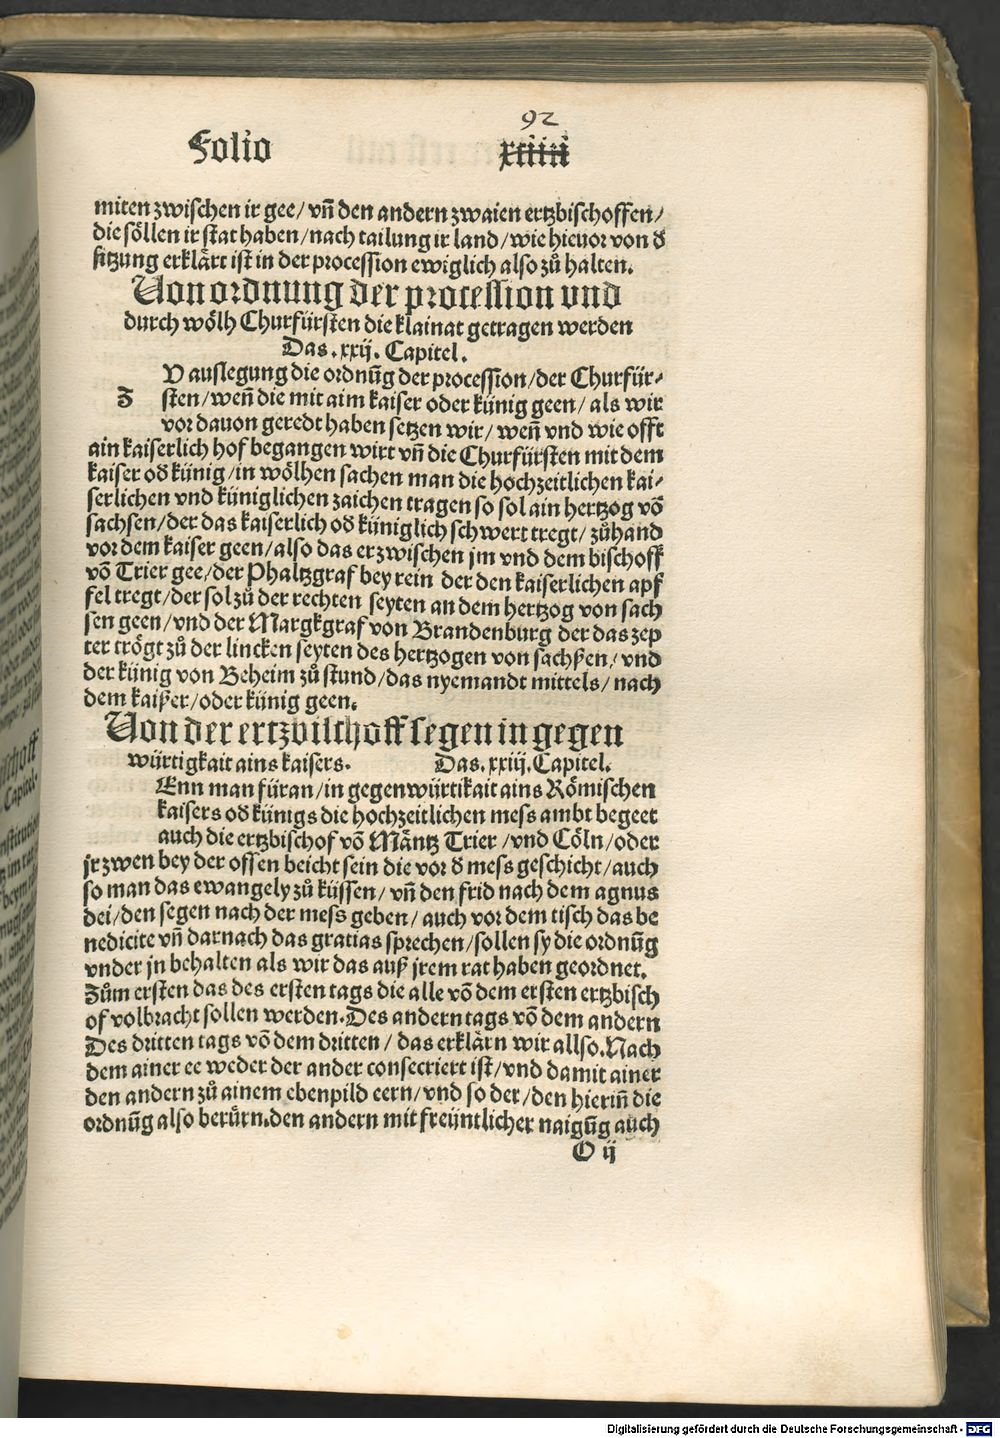 92
Folio xciiij
miten zwischen ir gee/ vñ den andern zwaien ertzbischoffen/
die söllen ir stat haben/nach tailung ir land/wie hieuor von d̕
sitzung erklärt ist in der procession ewiglich also zů halten.
Von ordnung der procession vnd
durch wölh Churfürsten die klainat getragen werden
Das.xxij.Capitel.
V auslegung die ordnũg der procession/der Churfür⸗
Z sten/weñ die mit aim kaiser oder künig geen/ als wir
vor dauon geredt haben setzen wir/ weñ vnd wie offt
ain kaiserlich hof begangen wirt vñ die Churfürsten mit dem
kaiser od̕ künig/in wölhen sachen man die hochzeitlichen kai⸗
serlichen vnd küniglichen zaichen tragen so sol ain hertzog võ
sachsen/der das kaiserlich od̕ küniglich schwert tregt/ zůhand
vor dem kaiser geen/also das er zwischen jm vnd dem bischoff
võ Trier gee/der Phaltzgraf bey rein der den kaiserlichen apf
fel tregt/der sol zů der rechten seyten an dem hertzog von sach
sen geen/vnd der Margkgraf von Brandenburg der das zep
ter trögt zů der lincken seyten des hertzogen von sachßen/vnd
der künig von Beheim zů stund/das nyemandt mittels/ nach
dem kaißer/oder künig geen.
Von der ertzbischoff segen in gegen
würtigkait ains kaisers. Das.xxiij.Capitel.
Enn man füran/in gegenwürtikait ains Römischen
kaisers od̕ künigs die hochzeitlichen mess ambt begeet
auch die ertzbischof võ Mäntz Trier/vnd Cöln/oder
jr zwen bey der offen beicht sein die vor d̕ mess geschicht/auch
so man das ewangely zů küssen/ vñ den frid nach dem agnus
dei/den segen nach der mess geben/ auch vor dem tisch das be
nedicite vñ darnach das gratias sprechen/sollen sy die ordnũg
vnder jn behalten als wir das auß jrem rat haben geordnet.
Zům ersten das des ersten tags die alle võ dem ersten ertzbisch
of volbracht sollen werden.Des andern tags võ dem andern
Des dritten tags võ dem dritten/ das erklärn wir allso.Nach
dem ainer ee weder der ander consecriert ist/vnd damit ainer
den andern zů ainem ebenpild eern/vnd so der/den hieriñ die
ordnũg also berůrn.den andern mit freüntlicher naigũg auch
O ij
Digitalisierung gefördert durch die Deutsche Forschungsgemeinschaft - DFG